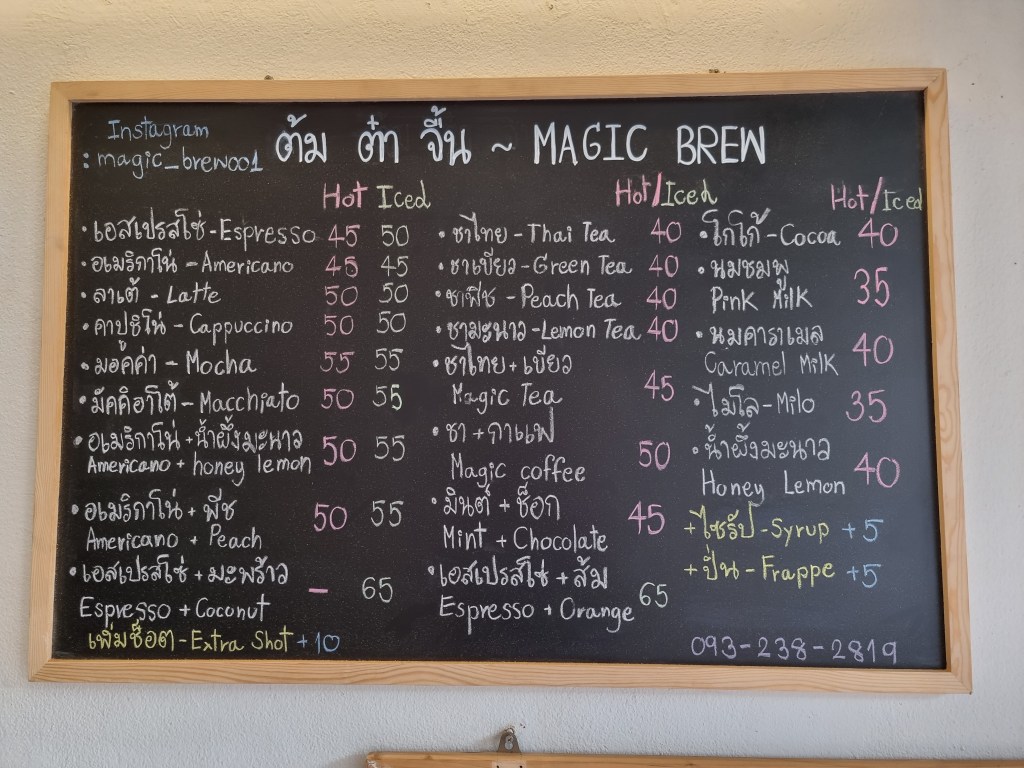 Instagram
: magic_brew001
ต้ม ต๋ำ จื้น ~ MAGIC BREW
Hot Iced
• เอสเปรสโซ่ - Espresso 45 50
• อเมริกาโน่ - Americano 45 45
• ลาเต้ - Latte 50 50
• คาปูชิโน่ - Cappuccino 50 50
• มอคค่า - Mocha 55 55
• มัคคิอาโต้ - Macchiato 50 55
• อเมริกาโน่ + น้ำผึ้งมะนาว
Americano + honey lemon 50 55
• อเมริกาโน่ + พีช
Americano + Peach 50 55
• เอสเปรสโซ่ + มะพร้าว
Espresso + Coconut - 65
เพิ่มช็อต - Extra Shot + 10
Hot/Iced
• ชาไทย - Thai Tea 40
• ชาเขียว - Green Tea 40
• ชาพีช - Peach Tea 40
• ชามะนาว - Lemon Tea 40
• ชาไทย + เขียว
Magic Tea 45
• ชา + กาแฟ
Magic coffee 50
• มินต์ + ช็อก
Mint + Chocolate 45
• เอสเปรสโซ่ + ส้ม
Espresso + Orange 65
Hot/Iced
• โกโก้ - Cocoa 40
• นมชมพู
Pink Milk 35
• นมคาราเมล
Caramel Milk 40
• ไมโล - Milo 35
• น้ำผึ้งมะนาว
Honey Lemon 40
+ ไซรัป - Syrup + 5
+ ปั่น - Frappe + 5
093-238-2819